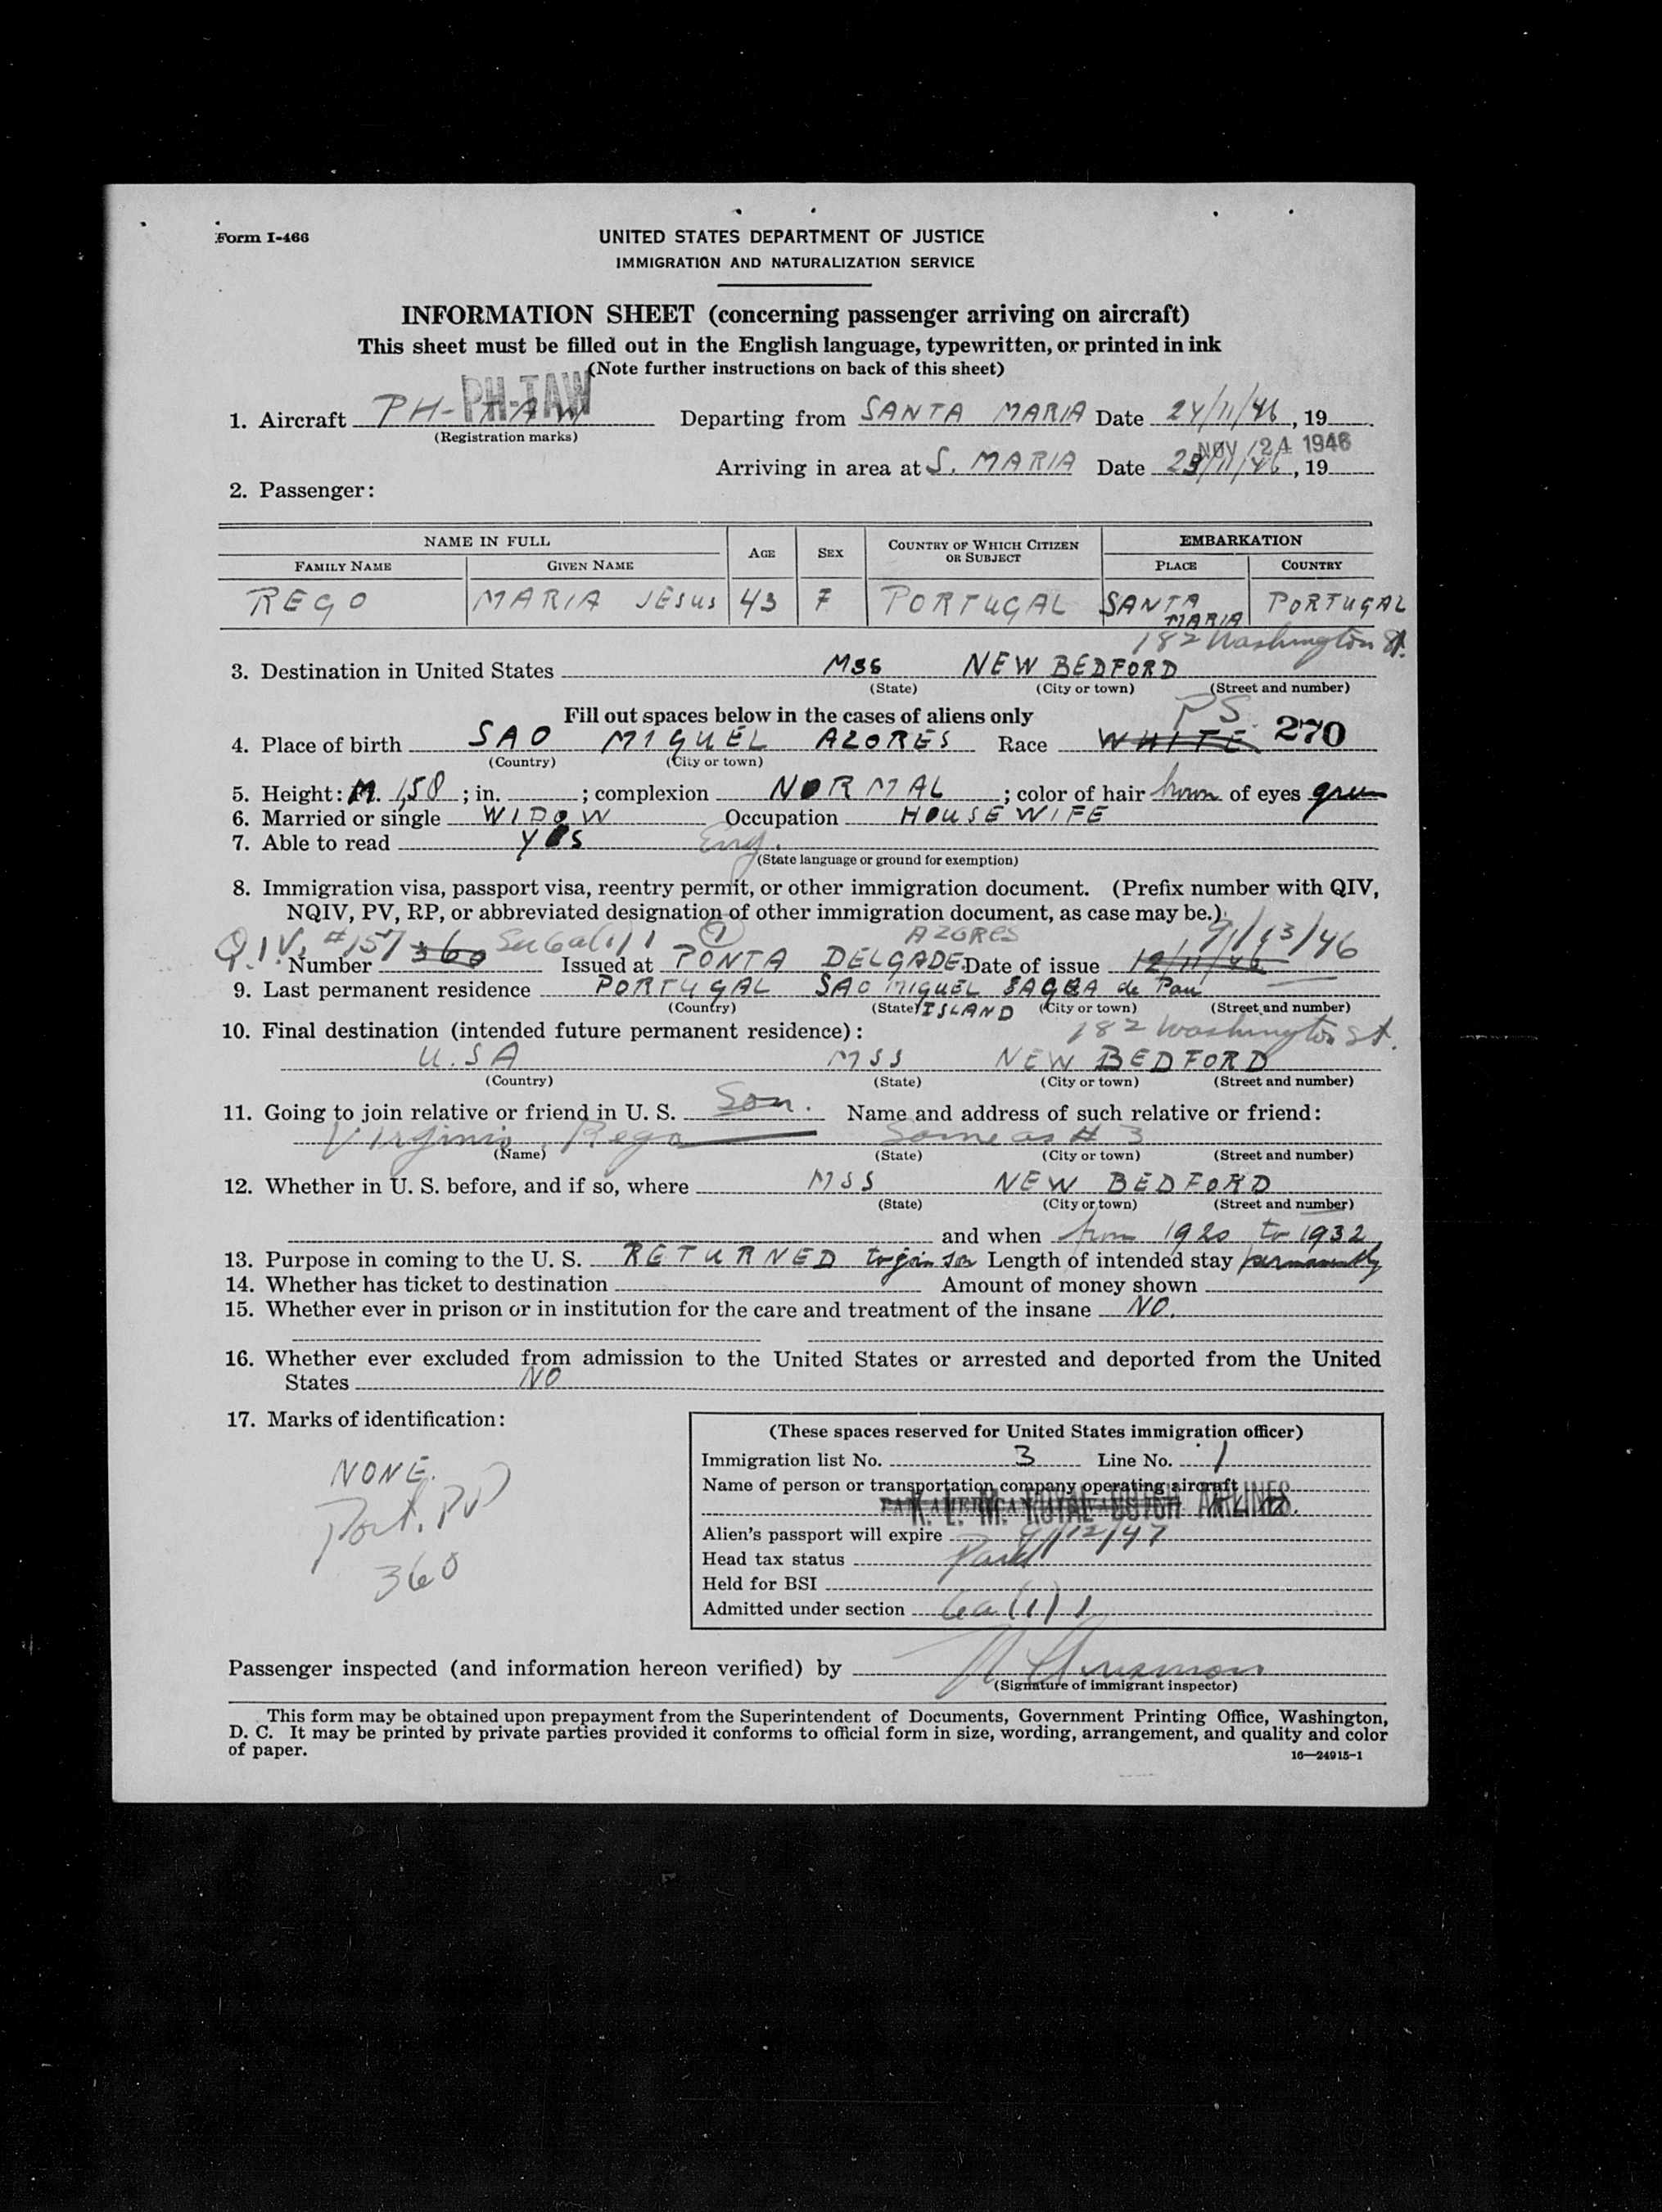 Form I-466
UNITED STATES DEPARTMENT OF JUSTICE
IMMIGRATION AND NATURALIZATION SERVICE
INFORMATION SHEET (concerning passenger arriving on aircraft)
This sheet must be filled out in the English language, typewritten, or printed in ink
(Note further instructions on back of this sheet)
PH-TAW
1. Aircraft PH-TAW Departing from SANTA MARIA Date 24/11/46, 19
(Registration marks)
NOV 24 1946
Arriving in area at S. MARIA Date 23/11/46, 19
2. Passenger:
NAME IN FULL AGE SEX COUNTRY OF WHICH CITIZEN OR SUBJECT EMBARKATION
FAMILY NAME GIVEN NAME PLACE COUNTRY
REGO MARIA JESUS 43 F PORTUGAL SANTA MARIA PORTUGAL
182 Washington St.
3. Destination in United States MSS NEW BEDFORD
(State) (City or town) (Street and number)
Fill out spaces below in the cases of aliens only
PS 270
4. Place of birth SAO MIGUEL AZORES Race WHITE
(Country) (City or town)
5. Height: M. 1,58; in. ; complexion NORMAL; color of hair brown of eyes green
6. Married or single WIDOW Occupation HOUSEWIFE
7. Able to read YES Eng.
(State language or ground for exemption)
8. Immigration visa, passport visa, reentry permit, or other immigration document. (Prefix number with QIV,
NQIV, PV, RP, or abbreviated designation of other immigration document, as case may be.)
Q.I.V. #157 Sec 6a(1)1 AZORES 9/13/46
Number 360 Issued at PONTA DELGADE. Date of issue 12/11/46
9. Last permanent residence PORTUGAL SAO MIGUEL ISLAND de Pau
(Country) (State) (City or town) (Street and number)
10. Final destination (intended future permanent residence):
182 Washington St.
U.SA MSS NEW BEDFORD
(Country) (State) (City or town) (Street and number)
11. Going to join relative or friend in U. S. Son. Name and address of such relative or friend:
Virginio Rego Same as # 3
(Name) (State) (City or town) (Street and number)
12. Whether in U. S. before, and if so, where MSS NEW BEDFORD
(State) (City or town) (Street and number)
and when from 1920 to 1932
13. Purpose in coming to the U. S. RETURNED to join son Length of intended stay permanently
14. Whether has ticket to destination Amount of money shown
15. Whether ever in prison or in institution for the care and treatment of the insane NO.
16. Whether ever excluded from admission to the United States or arrested and deported from the United
States NO
17. Marks of identification:
NONE.
Port. PP
360
(These spaces reserved for United States immigration officer)
Immigration list No. 3 Line No. 1
Name of person or transportation company operating aircraft
K. L. M. ROYAL DUTCH AIRLINES.
Alien's passport will expire 9/12/47
Head tax status Paid
Held for BSI
Admitted under section 6a(1)1
Passenger inspected (and information hereon verified) by
(Signature of immigrant inspector)
This form may be obtained upon prepayment from the Superintendent of Documents, Government Printing Office, Washington,
D. C. It may be printed by private parties provided it conforms to official form in size, wording, arrangement, and quality and color
of paper.
16—24915-1